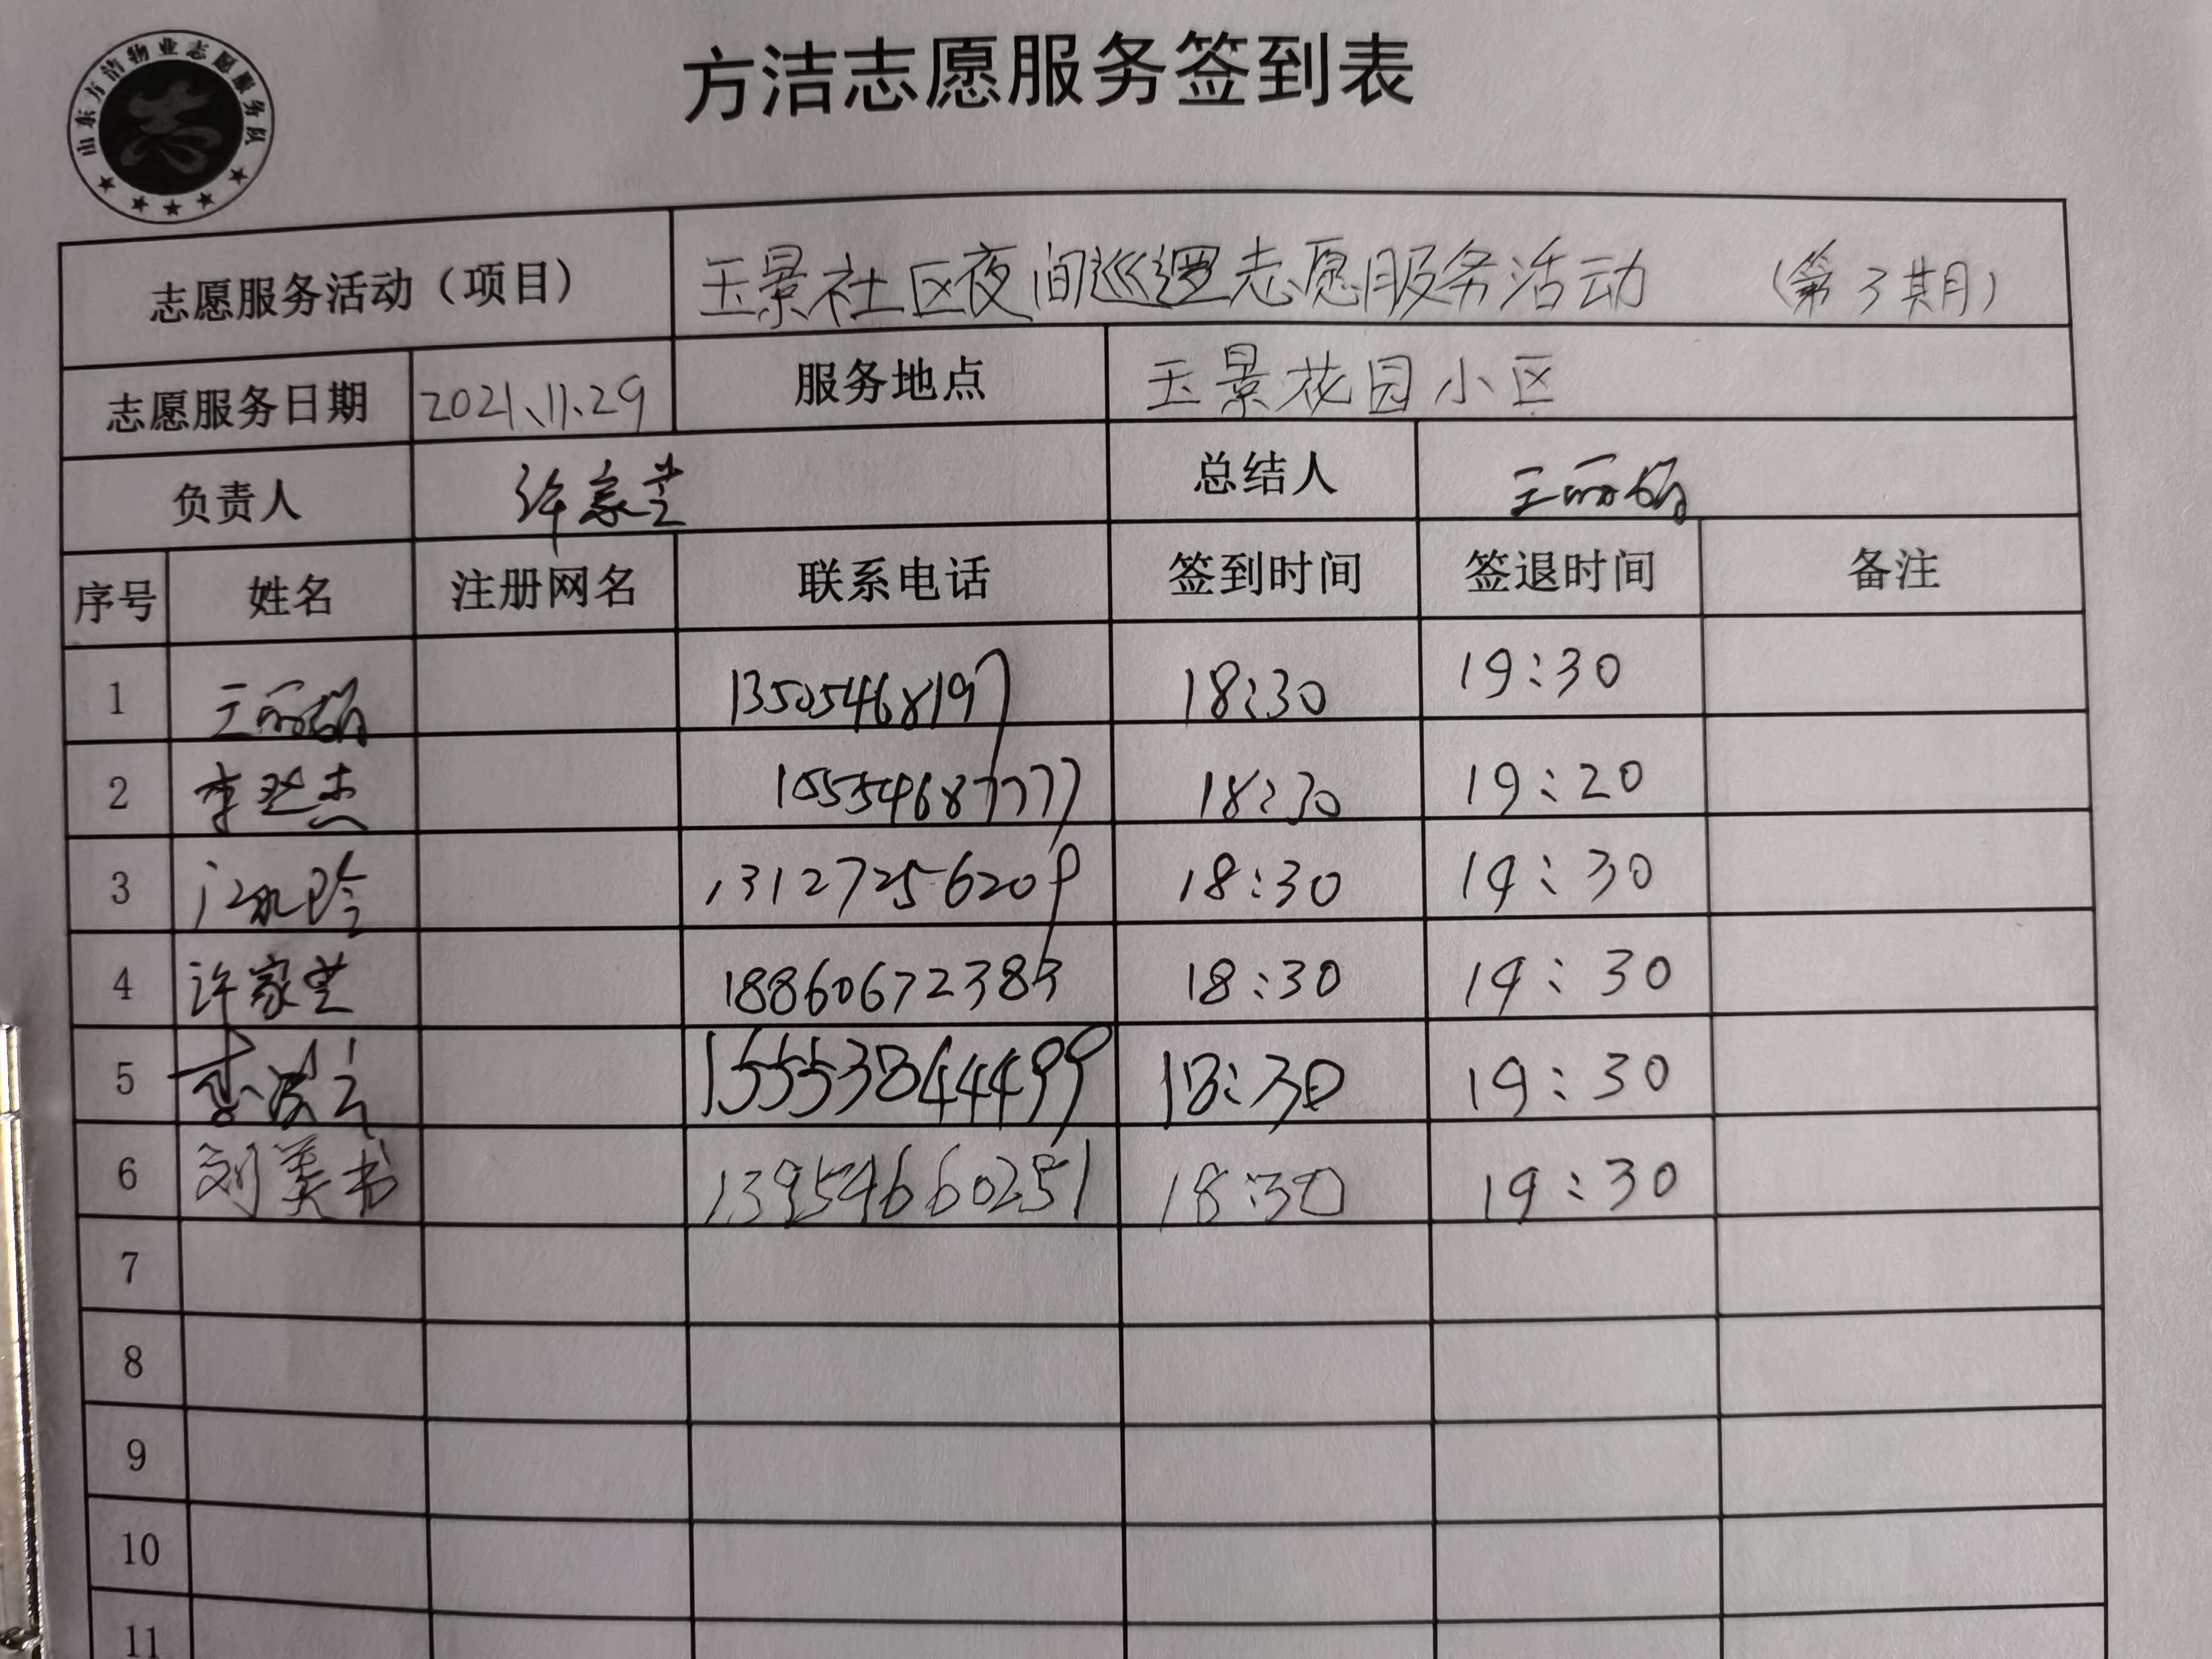 山东方洁物业志愿服务队
方洁志愿服务签到表
志愿服务活动（项目） 玉景社区夜间巡逻志愿服务活动 （第3期）
志愿服务日期 2021、11、29 服务地点 玉景花园小区
负责人 许家堂 总结人 王丽娟
序号 姓名 注册网名 联系电话 签到时间 签退时间 备注
1 王丽娟 13505468197 18:30 19:30
2 18:30 19:20
3 13127256209 18:30 19:30
4 许家堂 18860672383 18:30 19:30
5 15553844499 18:30 19:30
6 刘美书 13954660251 18:30 19:30
7
8
9
10
11